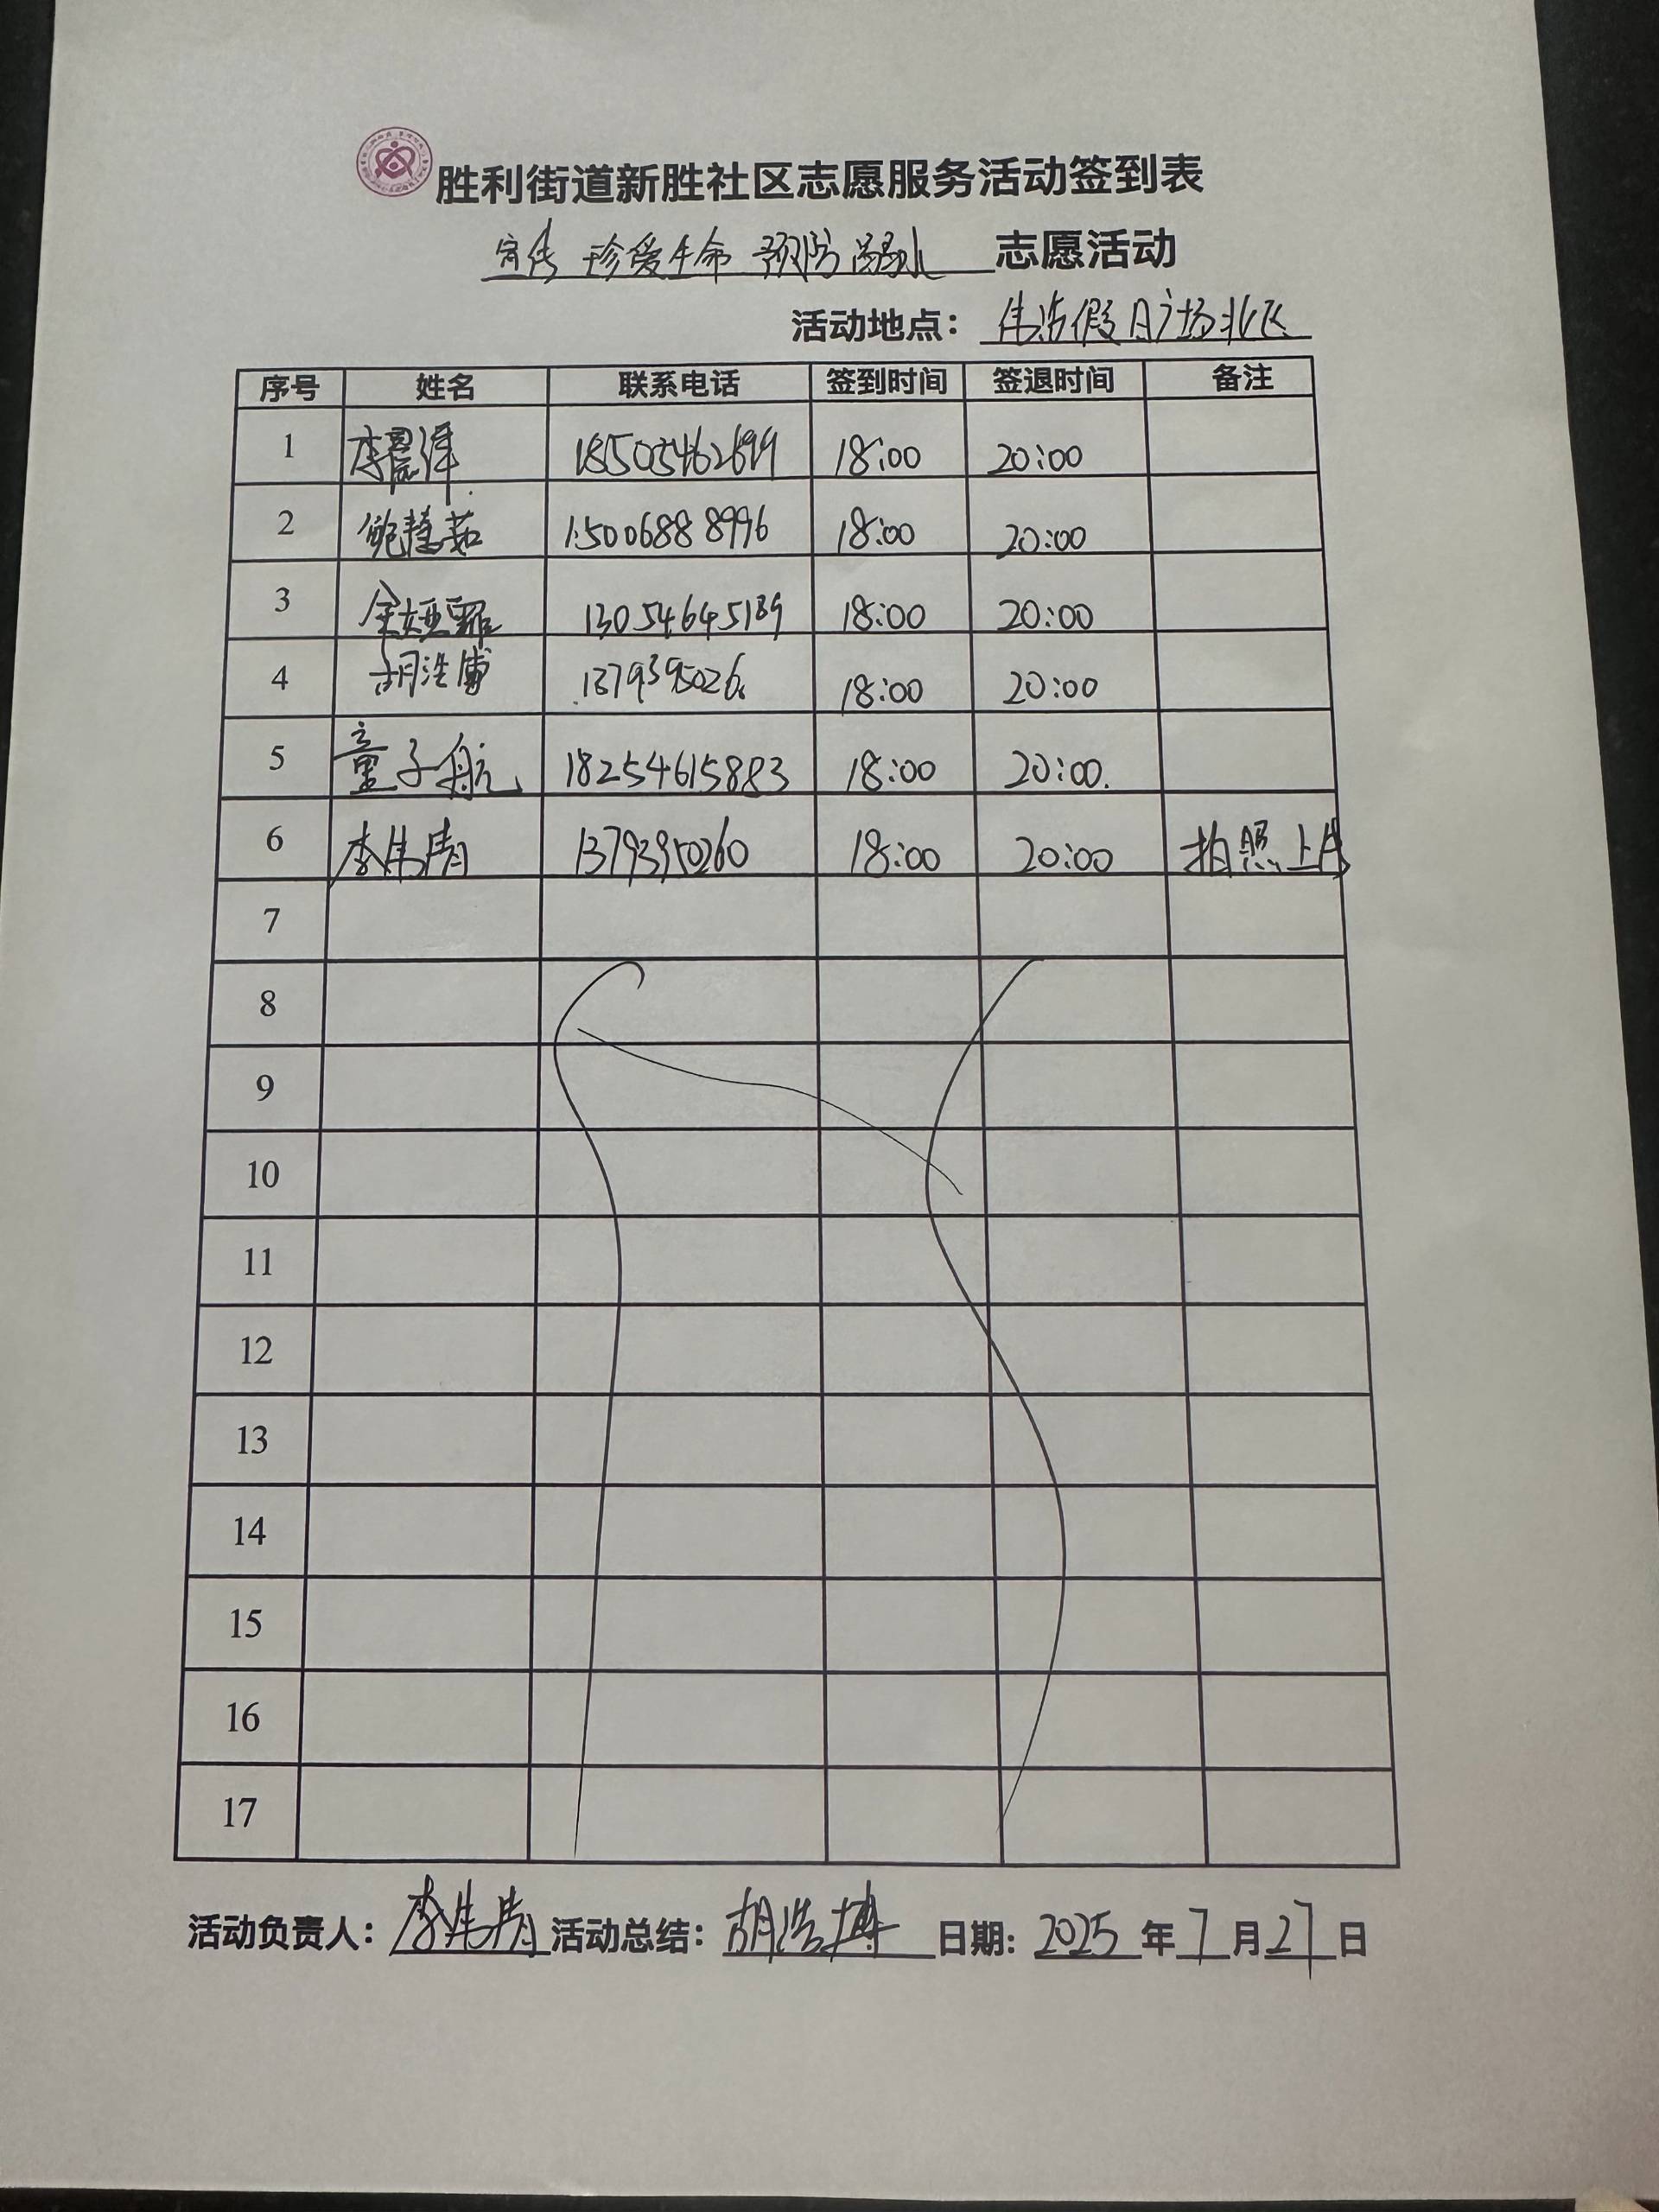 胜利街道新胜社区志愿服务活动签到表
宣传 珍爱生命 预防溺水 志愿活动
活动地点： 伟浩假日广场北区
序号 姓名 联系电话 签到时间 签退时间 备注
1 李晨泽 18505462699 18:00 20:00
2 鲍慧茹 15006888996 18:00 20:00
3 金娅 13054645189 18:00 20:00
4 胡浩博 18:00 20:00
5 童子航 18254615883 18:00 20:00.
6 李伟清 13793950260 18:00 20:00 拍照上传
7
8
9
10
11
12
13
14
15
16
17
活动负责人： 李伟清 活动总结： 胡浩博 日期: 2025 年 7 月 27 日